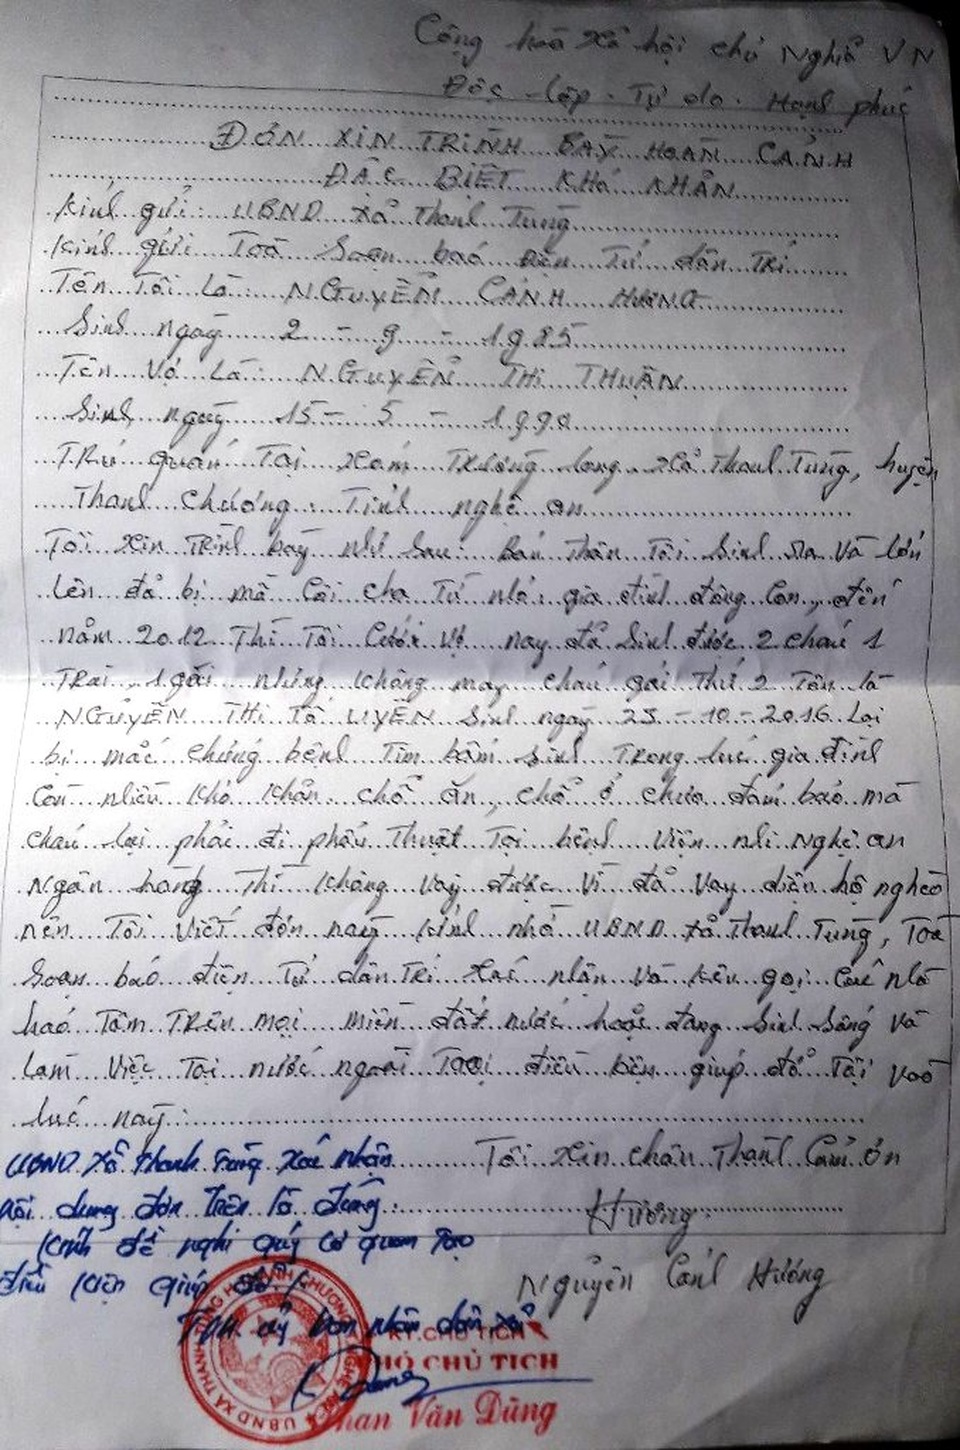 Cộng hoà xã hội chủ Nghĩa VN
Độc lập. Tự do. Hạnh phúc
ĐƠN XIN TRÌNH BÀY HOÀN CẢNH
ĐẶC BIỆT KHÓ KHĂN
Kính gửi: UBND xã Thanh Tùng
Kính gửi Toà soạn báo điện Tử dân Trí
Tên Tôi Là: NGUYỄN CẢNH HƯƠNG
Sinh ngày 2 - 9 - 1985
Tên Vợ Là: NGUYỄN THỊ THUẬN
Sinh ngày 15 - 5 - 1990
Trú quán Tại xóm Trường long, xã Thanh Tùng, huyện
Thanh Chương. Tỉnh nghệ an
Tôi xin Trình bày như sau: bản Thân Tôi sinh ra và lớn
lên đã bị mồ Côi cha Từ nhỏ, gia đình đông Con, đến
năm 2012 Thì Tôi Cưới vợ nay đã sinh được 2 cháu 1
Trai, 1 gái nhưng không may cháu gái Thứ 2 Tên là
NGUYỄN THỊ TỐ UYÊN sinh ngày 23 - 10 - 2016 lại
bị mắc chứng bệnh Tim bẩm sinh Trong lúc gia đình
Còn nhiều khó khăn, chổ ăn, chổ ở chưa đảm bảo mà
cháu lại phải đi phẩu Thuật Tại bệnh viện nhi Nghệ an
Ngân hàng Thì không vay được vì đã vay diện hộ nghèo
nên Tôi viết đơn này kính nhờ UBND xã Thanh Tùng, Toà
soạn báo điện Tử dân Trí xác nhận và kêu gọi Các nhà
hảo Tâm Trên mọi miền đất nước hoặc đang sinh sống và
làm việc Tại nước ngoài Tạo điều kiện giúp đỡ Tôi vào
lúc này.
UBND xã Thanh Tùng xác nhận
Tôi xin chân Thành Cảm ơn
nội dung đơn trên là đúng.
Hương
Kính đề nghị quý cơ quan tạo
điều kiện giúp đỡ./.
Nguyễn Cảnh Hương
TM. ủy ban nhân dân xã
KT.CHỦ TỊCH
PHÓ CHỦ TỊCH
Phan Văn Dũng